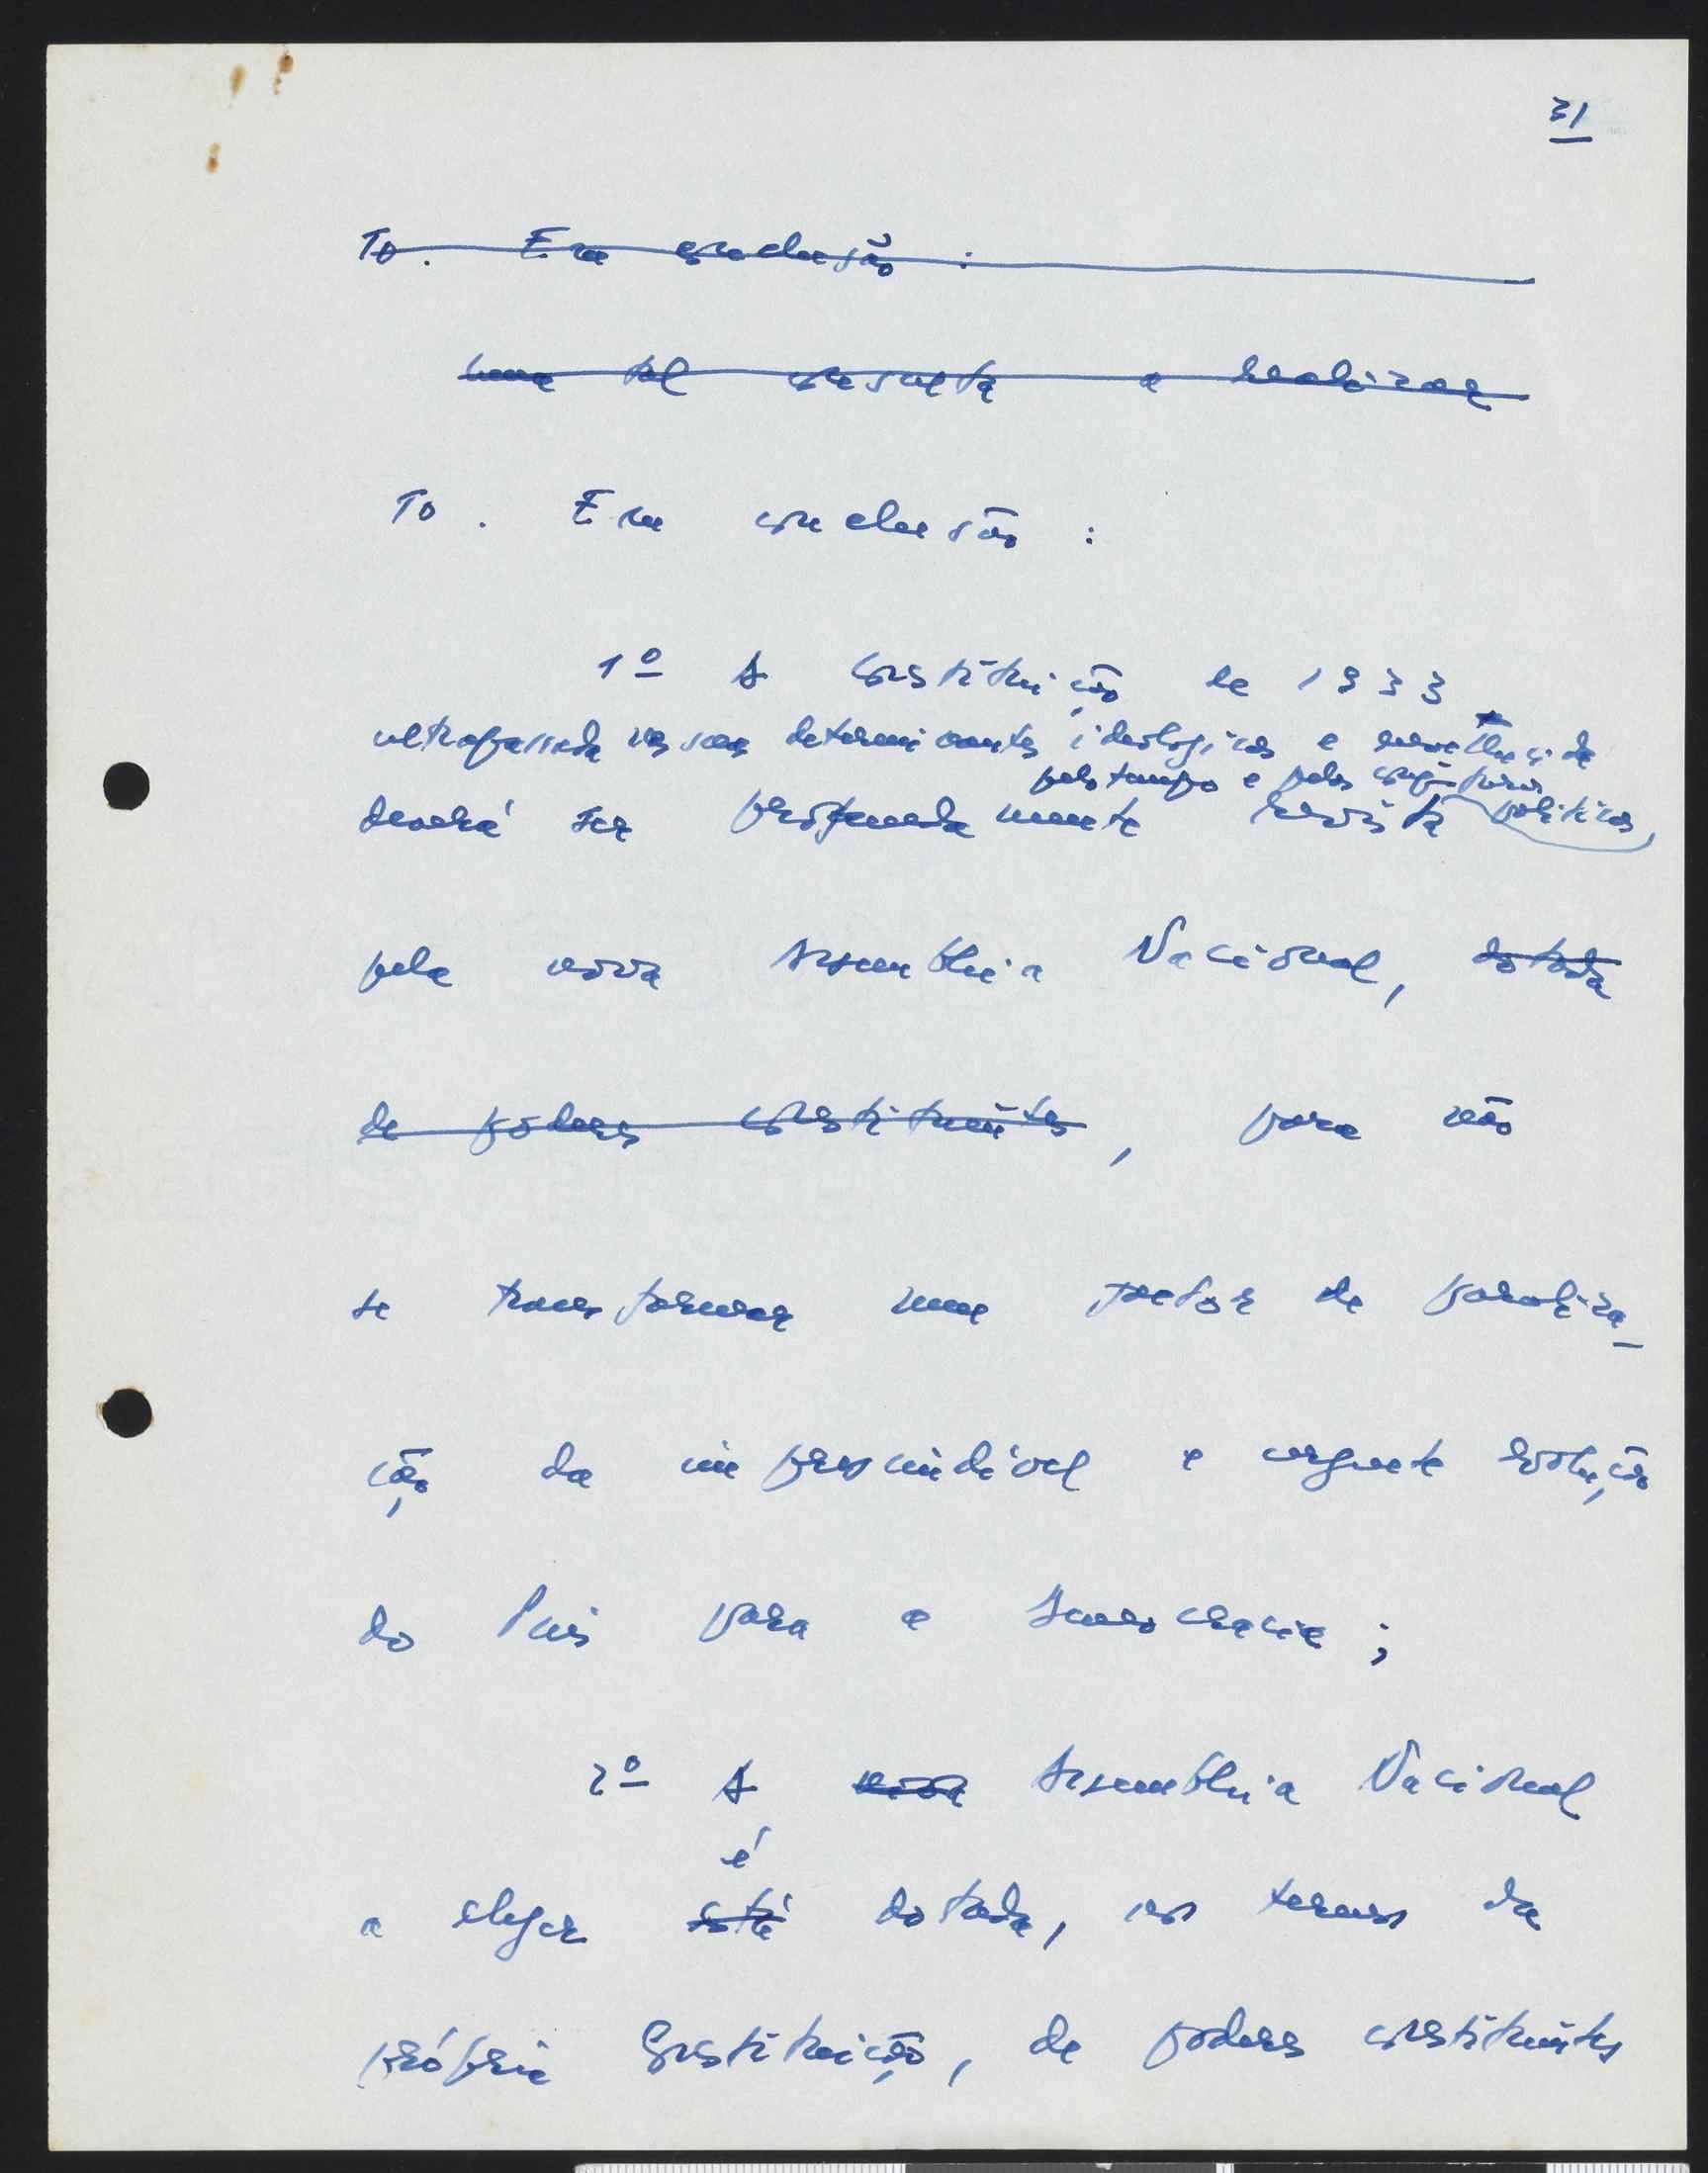 31
70. Em conclusão :
uma tal consulta a realizar
70. Em conclusão :
1º A Constituição de 1933
ultrapassada nas suas determinantes ideológicas e envelhecida
pelo tempo e pelas conjunturas políticas,
deverá ser profundamente revista
pela nova Assembleia Nacional, dotada
de poderes constituintes, para não
se transformar num factor de paraliza-
ção da imprescindível e urgente evolução
do País para a democracia ;
2º A nova Assembleia Nacional
é
a eleger está dotada, nos termos da
própria Constituição, de poderes constituintes